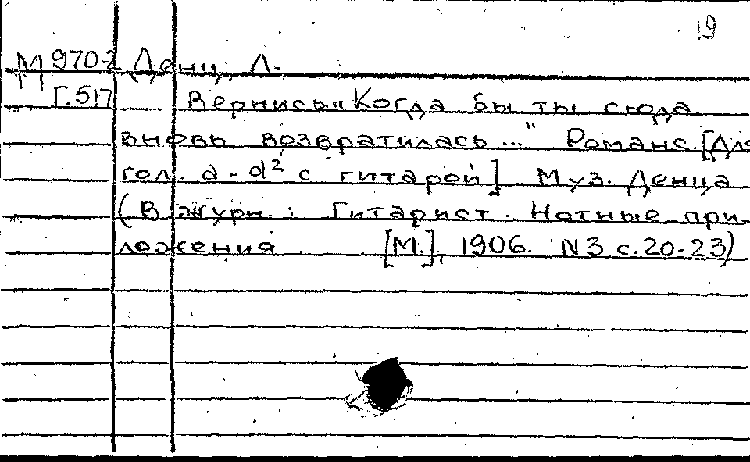 19
М 970-2 Денц, Л.
Г.517 Вернись „Когда бы ты сюда
вновь возвратилась..." Романс. [Для
гол. a-d² с гитарой] Муз. Денца
(В журн.: Гитарист. Нотные при-
ложения [М.], 1906. N3 с.20-23)